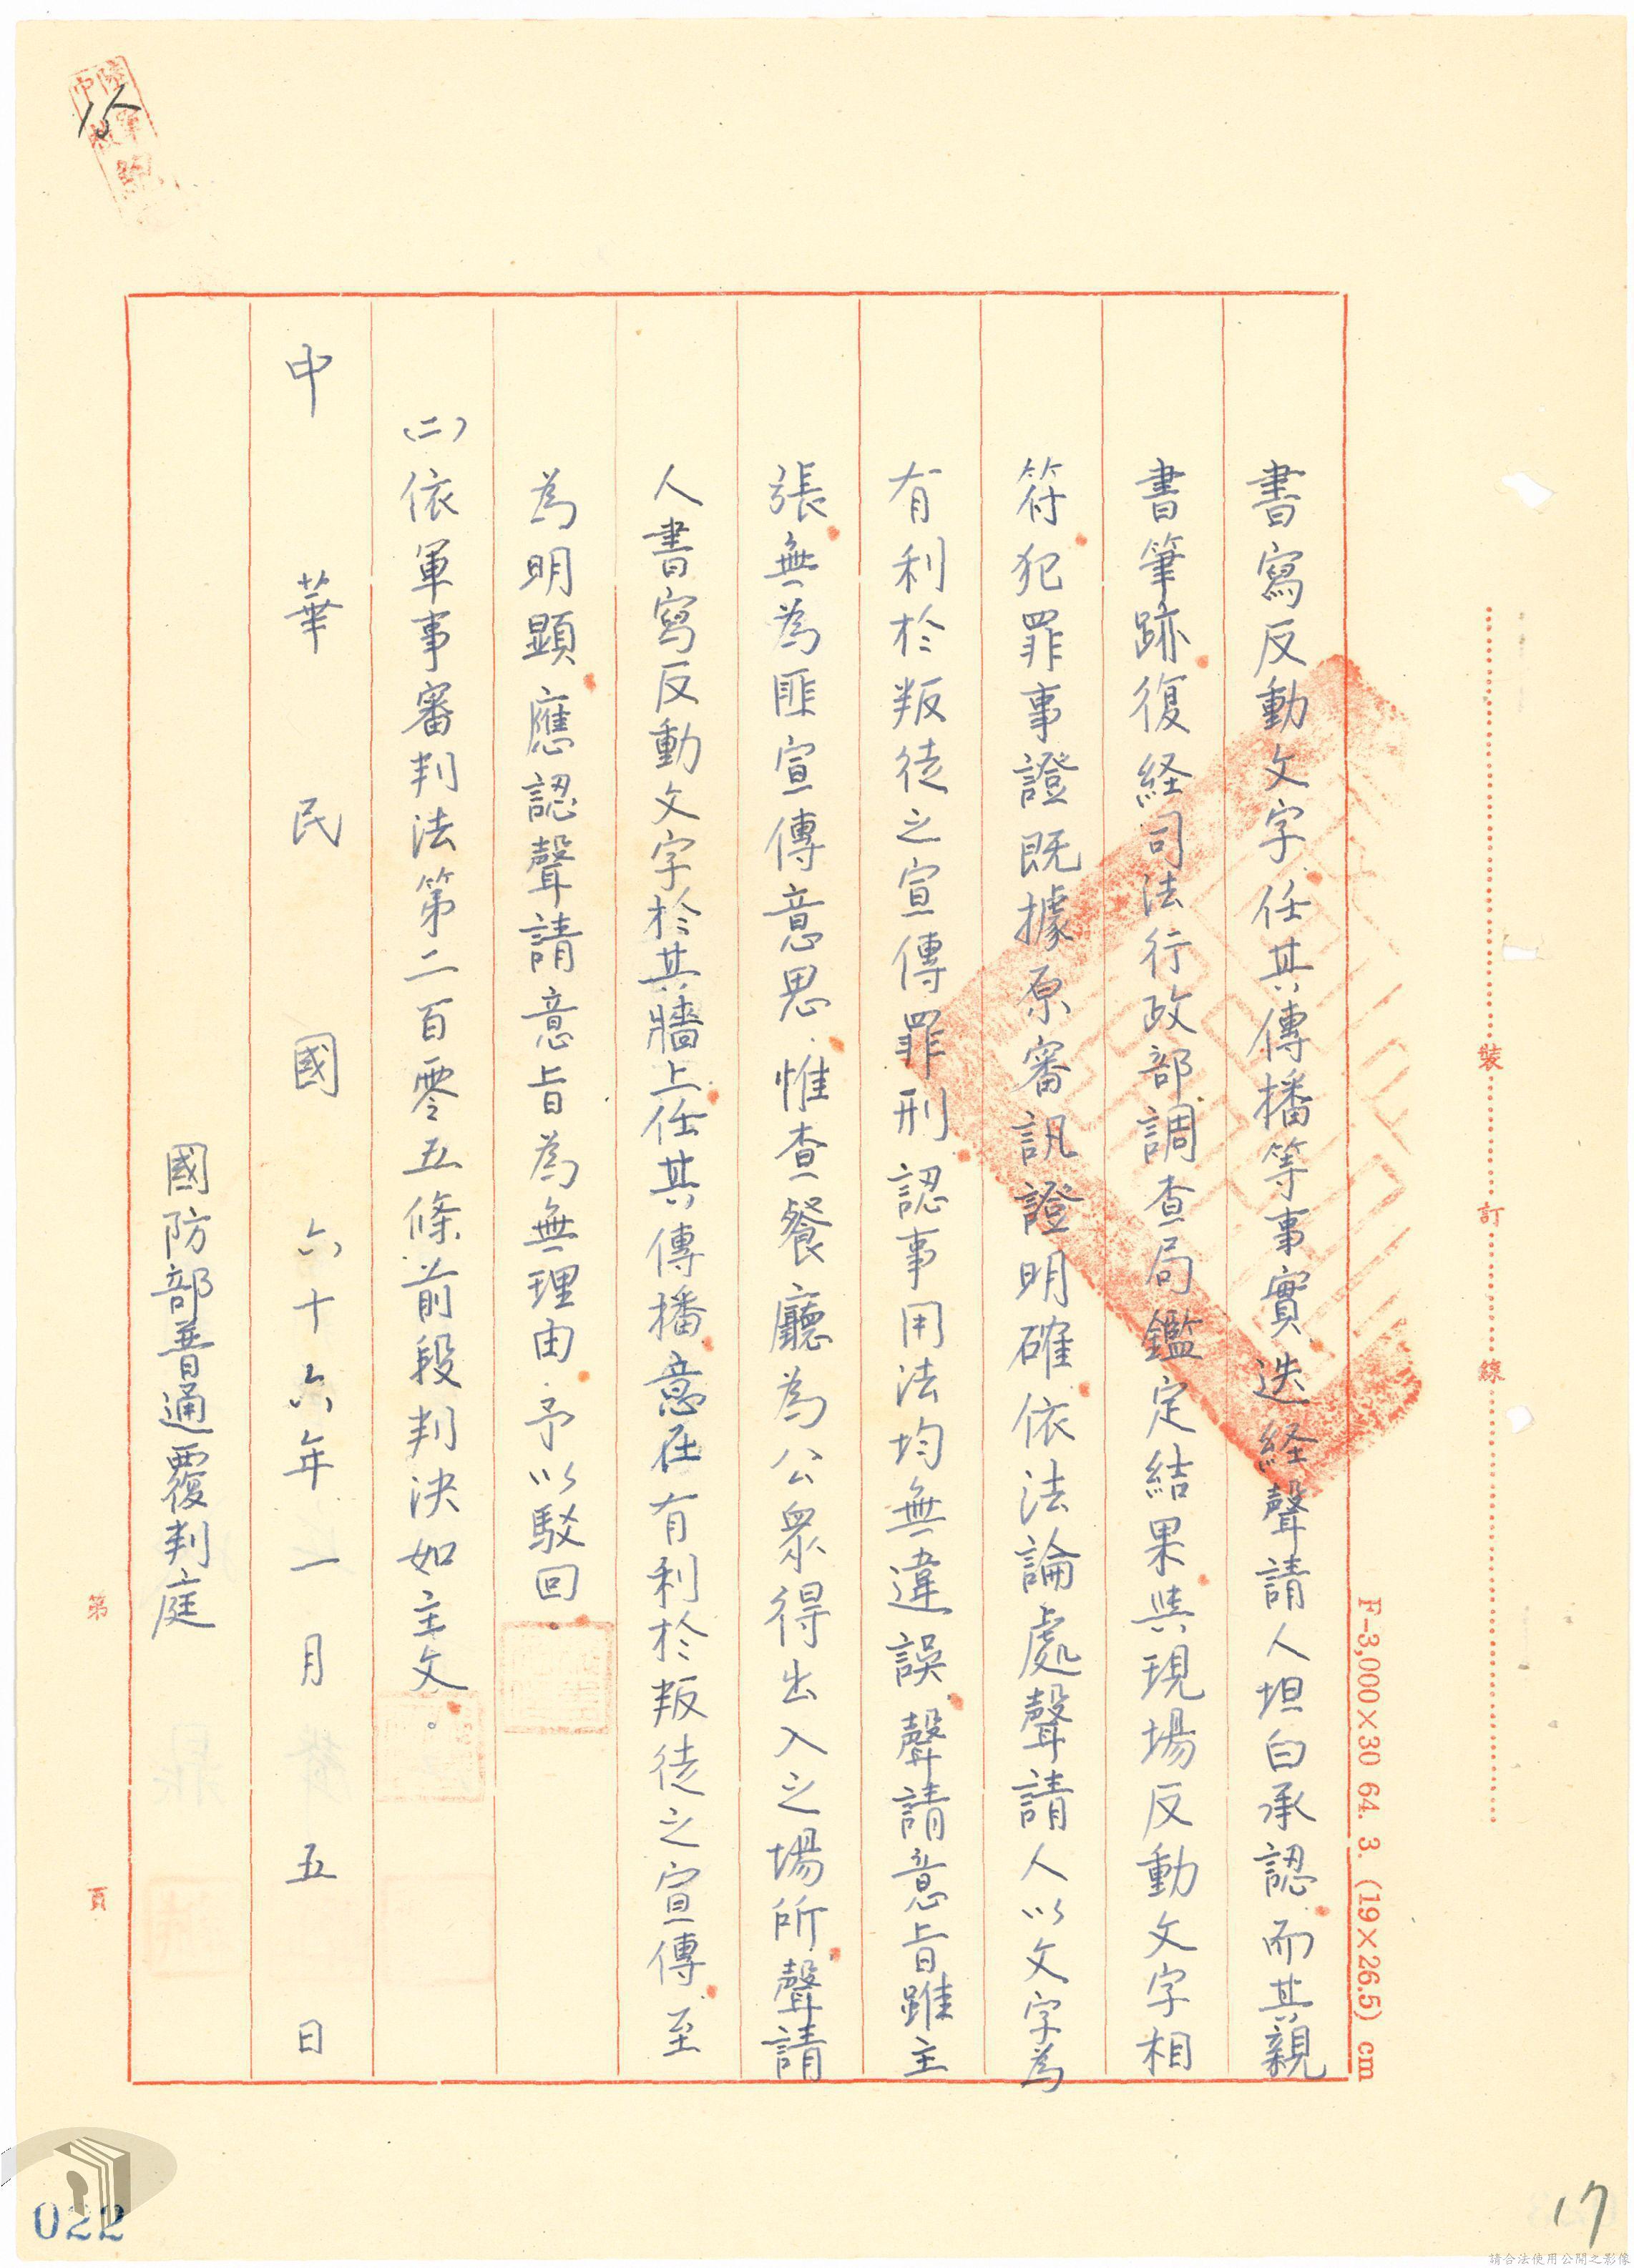 書寫反動文字任其傳播等事實迭経聲請人坦白承認而其親
書筆跡復経司法行政部調查局鑑定結果與現場反動文字相
符犯罪事證既據原審訊證明確依法論處聲請人以文字為
有利於叛徒之宣傳罪刑認事用法均無違誤聲請意旨雖主
張無為匪宣傳意思惟查餐廳為公衆得出入之場所聲請
人書寫反動文字於其牆上任其傳播意在有利於叛徒之宣傳至
為明顯應認聲請意旨為無理由予以駁回。
(二)依軍事審判法第二百零五條前段判決如主文。
中華民國六十六年一月五日
國防部普通覆判庭
裝訂線
F-3,000×30 64. 3. (19×26.5) cm
第 頁
17
022
請合法使用公開之影像